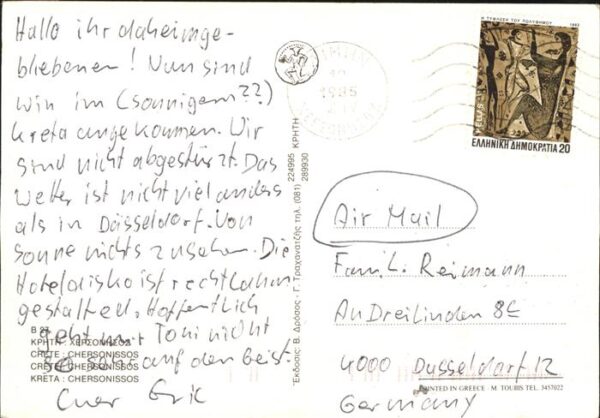 Hallo ihr daheimge-
bliebenen! Nun sind
wir im (sonnigem??)
Kreta angekommen. Wir
sind nicht abgestürzt. Das
Wetter ist nicht viel anders
als in Düsseldorf. Von
Sonne nichts zu sehen. Die
Hoteldisko ist recht lahm
gestaltet. Hoffentlich
geht mir Toni nicht
so sehr auf den Geist.
Euer Eric
B 87
ΚΡΗΤΗ : ΧΕΡΣΟΝΗΣΟΣ
CRETE : CHERSONISSOS
CRETE : CHERSONISSOS
KRETA : CHERSONISSOS
Εκδοσις: Β. Δρόσος - Γ. Τραχανατζής τηλ. (081) 224995 289930 ΚΡΗΤΗ
1985
Η ΤΥΦΛΩΣΗ ΤΟΥ ΠΟΛΥΦΗΜΟΥ 1983
HELLAS
ΕΛΛΗΝΙΚΗ ΔΗΜΟΚΡΑΤΙΑ 20
Air Mail
Famil. Reimann
An Dreilinden 8c
4000 Dusseldorf 12
PRINTED IN GREECE M. TOUBIS TEL. 3457022
Germany